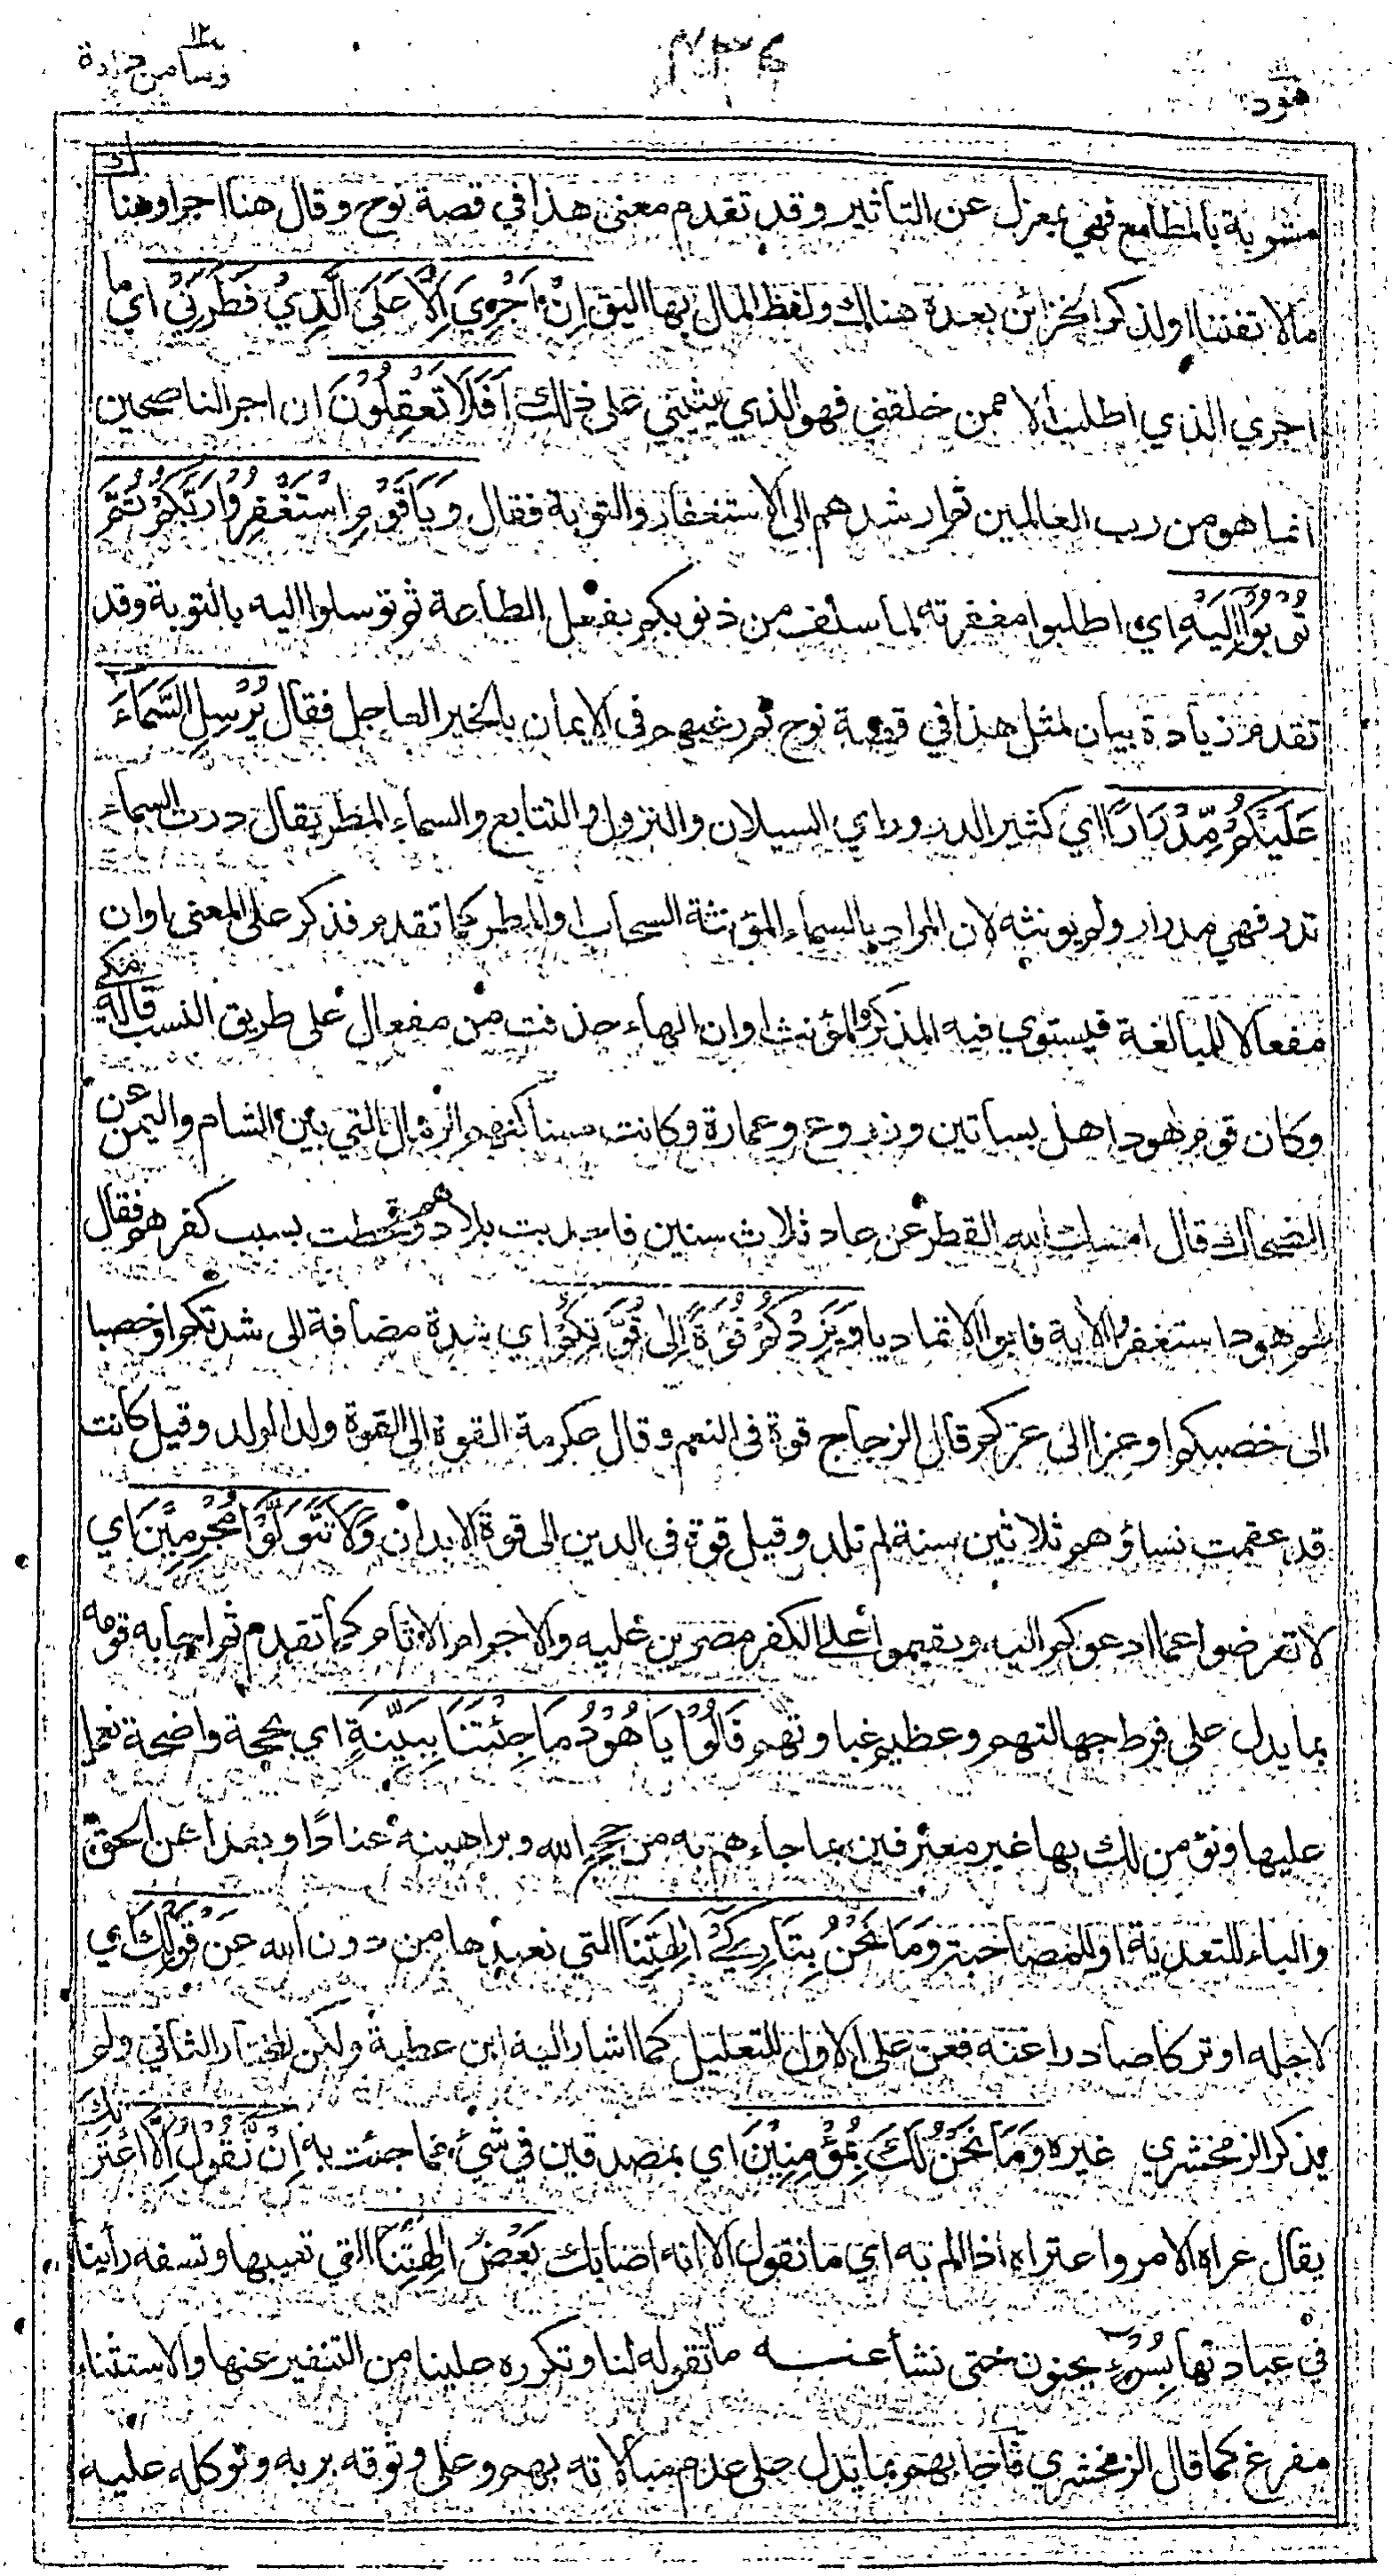 هود
٤٣٦
١٢
وما من دابة
مشوبة بالمطامع فهي بمعزل عن التأثير وقد تقدم معنى هذا في قصة نوح وقال هنا اجرا وهناك
مالا تفننا اولذكر الخزائن بعده هناك ولفظ المال بها اليق اِنْ اَجْرِيَ اِلَّا عَلَى الَّذِيْ فَطَرَنِيْ اي ما
اجري الذي اطلب الا ممن خلقني فهو الذي يثيبني على ذلك اَفَلَا تَعْقِلُوْنَ ان اجر الناصحين
انما هو من رب العالمين ثم ارشدهم الى الاستغفار والتوبة فقال وَيَا قَوْمِ اسْتَغْفِرُوْا رَبَّكُمْ ثُمَّ
تُوْبُوْا اِلَيْهِ اي اطلبوا مغفرته لما سلف من ذنوبكم بفعل الطاعة ثم توسلوا اليه بالتوبة وقد
تقدم زيادة بيان لمثل هذا في قصة نوح ثم رغبهم في الايمان بالخير العاجل فقال يُرْسِلِ السَّمَاءَ
عَلَيْكُمْ مِّدْرَارًا اي كثير الدرور اي السيلان والنزول والتتابع والسماء المطر يقال درت السماء
تدر فهي مدرار ولم يونثه لان المراد بالسماء المؤنثة السحاب او المطر كما تقدم فذكر على المعنى او ان
مفعالا للمبالغة فيستوي فيه المذكر والمؤنث او ان الهاء حذفت من مفعال على طريق النسب قاله مكي
وكان قوم هود اهل بساتين وزروع وعمارة وكانت مساكنهم الرمال التي بين الشام واليمن عن
الضحاك قال امسك الله القطر عن عاد ثلاث سنين فاجدبت بلادهم وقحطت بسبب كفرهم فقال
لهم هود استغفروا الاية فابوا الا تماديا وَيَزِدْكُمْ قُوَّةً اِلٰى قُوَّتِكُمْ اي شدة مضافة الى شدتكم او خصبا
الى خصبكم او عزا الى عزكم قال الزجاج قوة في النعم وقال عكرمة القوة الى القوة ولد الولد وقيل كانت
قد عقمت نساؤهم ثلاثين سنة لم تلد وقيل قوة في الدين الى قوة الابدان وَلَا تَتَوَلَّوْا مُجْرِمِيْنَ اي
لا تعرضوا عما ادعوكم اليه وتقيموا على الكفر مصرين عليه والاجرام الاثام كما تقدم ثم اجابه قومه
بما يدل على فرط جهالتهم وعظيم غباوتهم قَالُوْا يَا هُوْدُ مَا جِئْتَنَا بِبَيِّنَةٍ اي بحجة واضحة نعمل
عليها ونؤمن لك بها غير معترفين بما جاءهم به من حجج الله وبراهينه عنادًا وبعدا عن الحق
والباء للتعدية او للمصاحبة وَمَا نَحْنُ بِتَارِكِيْ اٰلِهَتِنَا التي نعبدها من دون الله عَنْ قَوْلِكَ اي
لاجله او تركا صادرا عنه فعن على الاول للتعليل كما اشار اليه ابن عطية ولكن المختار الثاني ولم
يذكر الزمخشري غيره وَمَا نَحْنُ لَكَ بِمُؤْمِنِيْنَ اي بمصدقين في شيء مما جئت به اِنْ نَّقُوْلُ اِلَّا اعْتَرٰىكَ
يقال عراه الامر واعتراه اذا الم به اي ما نقول الا انه اصابك بَعْضُ اٰلِهَتِنَا التي تعيبها وتسفه رأينا
في عبادتها بِسُوْءٍ بجنون حتى نشأ عنه ما تقوله لنا وتكرره علينا من التنفير عنها والاستثناء
مفرغ كما قال الزمخشري فاجابهم بما يدل على عدم مبالاته بهم وعلى وثوقه بربه وتوكله عليه